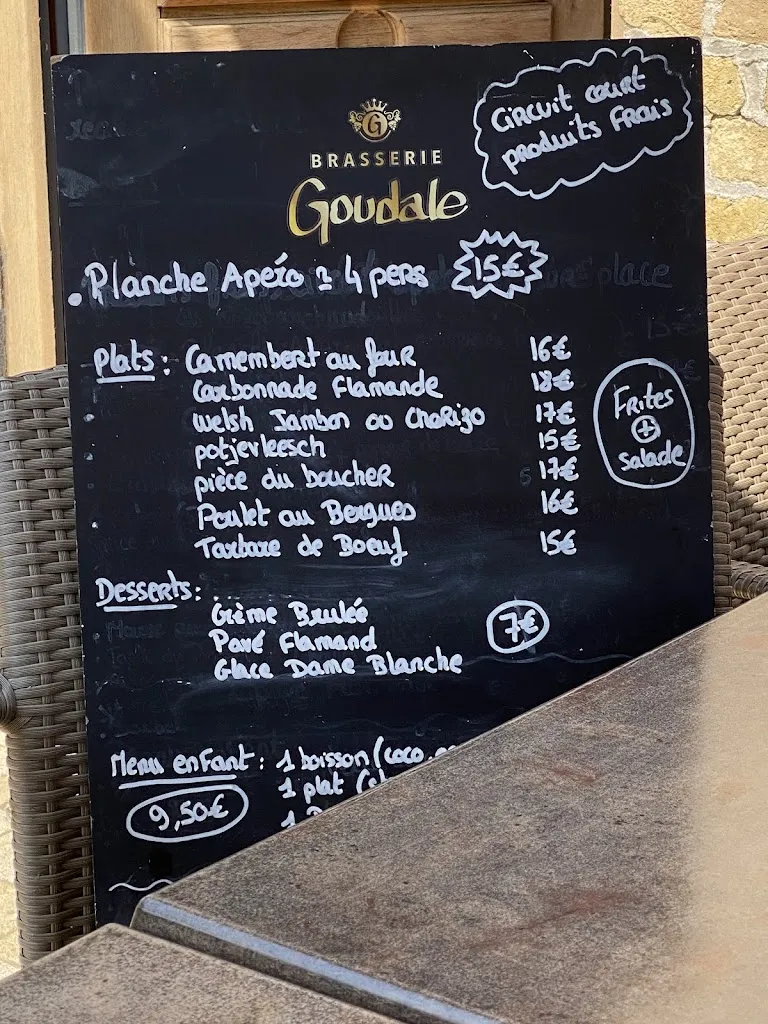 Circuit court
produits Frais
G
BRASSERIE
Goudale
. Planche Apéro = 4 pers 15€
Plats : Camembert au four 16€
Carbonnade Flamande 18€
Welsh Jambon ou Chorizo 17€
potjevleesch 15€
pièce du boucher 17€
Poulet au Bergues 16€
Tartare de Boeuf 15€
Frites
+
salade
Desserts :
Crème Brulée
Pavé Flamand
Glace Dame Blanche
7€
Menu enfant : 1 boisson (coco,
1 plat (
1
9,50€